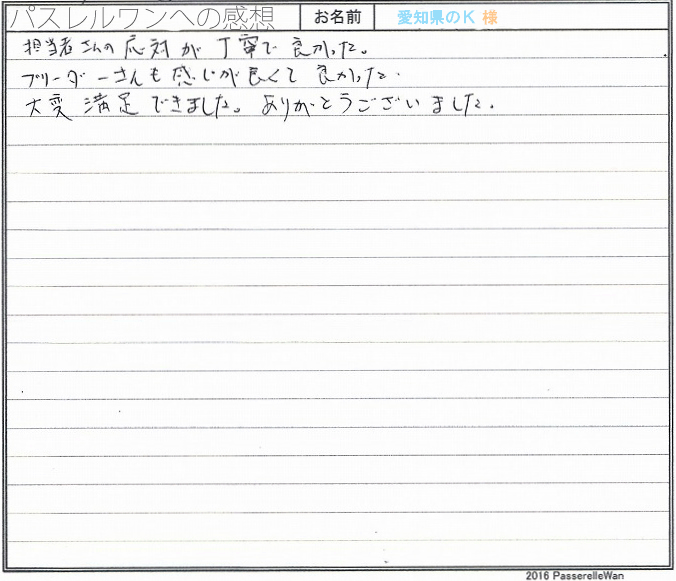 パスレルワンへの感想 お名前 愛知県のK 様
担当者さんの応対が丁寧で良かった。
ブリーダーさんも感じが良くて良かった.
大変満足できました。ありがとうございました.
2016 PasserelleWan